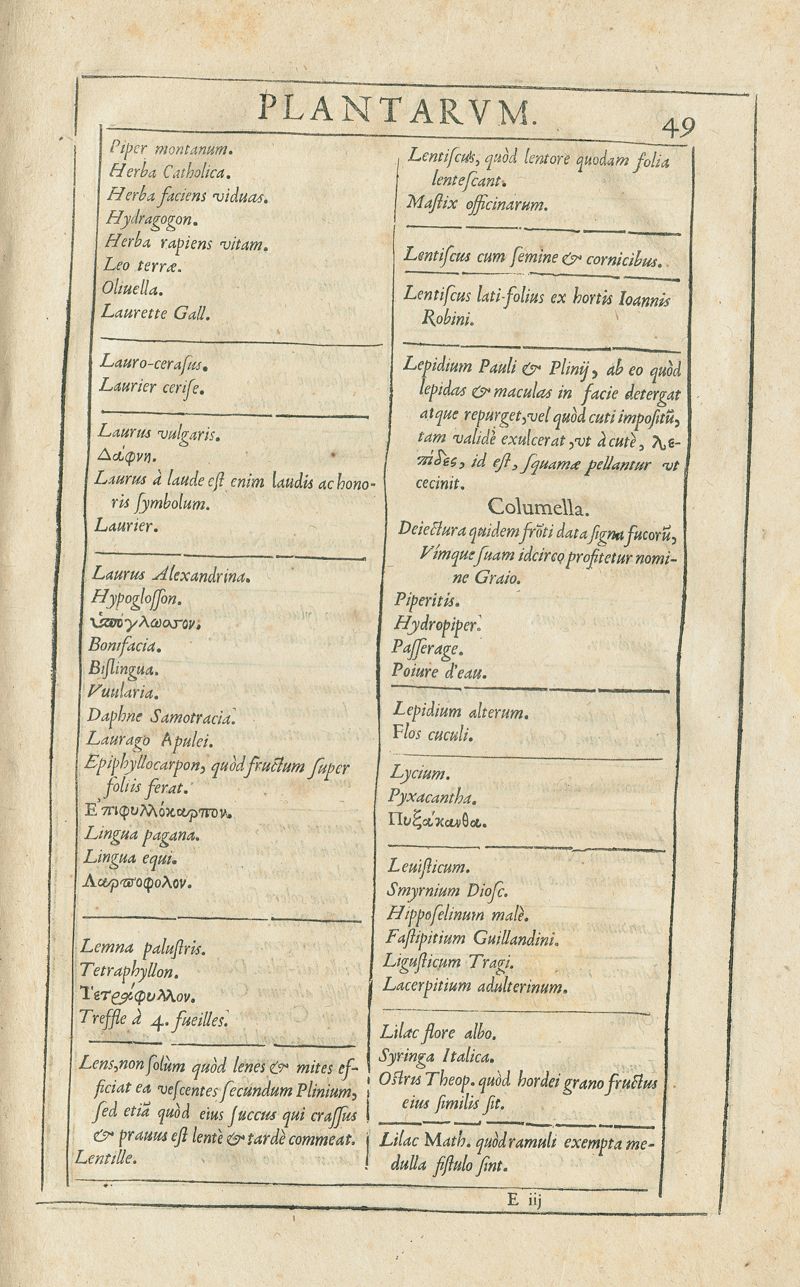 PLANTARVM.
49
Piper montanum.
Herba Catholica.
Herba faciens viduas.
Hydragogon.
Herba rapiens vitam.
Leo terræ.
Oliuella.
Laurette Gall.
Lauro-cerasus.
Laurier cerise.
Laurus vulgaris.
Δάφνη.
Laurus à laude est enim laudis ac hono-
ris symbolum.
Laurier.
Laurus Alexandrina.
Hypoglosson.
ὑπόγλωσσον.
Bonifacia.
Bislingua.
Vuularia.
Daphne Samotracia.
Laurago Apulei.
Epiphyllocarpon, quòd fructum super
foliis ferat.
Ἐπιφυλλόκαρπον.
Lingua pagana.
Lingua equi.
Λαρποφολον.
Lemna palustris.
Tetraphyllon.
Τετράφυλλον.
Treffle à 4. fueilles.
Lens, non solùm quòd lenes & mites ef-
ficiat ea vescentes secundum Plinium,
sed etiã quòd eius succus qui crassus
& prauus est lentè & tardè commeat.
Lentille.
Lentiscus, quòd lentore quodam folia
lentescant.
Mastix officinarum.
Lentiscus cum semine & cornicibus.
Lentiscus lati-folius ex hortis Ioannis
Robini.
Lepidium Pauli & Plinij, ab eo quòd
lepidas & maculas in facie detergat
atque repurget, vel quòd cuti impositũ,
tam validè exulcerat, vt à cutè, λε-
πίδες, id est, squamæ pellantur vt
cecinit.
Columella.
Deiectura quidem frõti data signa fucorũ,
Vimque suam idcirco profitetur nomi-
ne Graio.
Piperitis.
Hydropiper.
Passerage.
Poiure d'eau.
Lepidium alterum.
Flos cuculi.
Lycium.
Pyxacantha.
Πυξάκανθα.
Leuisticum.
Smyrnium Diosc.
Hipposelinum malè.
Fastipitium Guillandini.
Ligusticum Tragi.
Lacerpitium adulterinum.
Lilac flore albo.
Syringa Italica.
Ostris Theop. quòd hordei grano fructus
eius similis sit.
Lilac Math. quòd ramuli exempta me-
dulla fistulo sint.
E iij